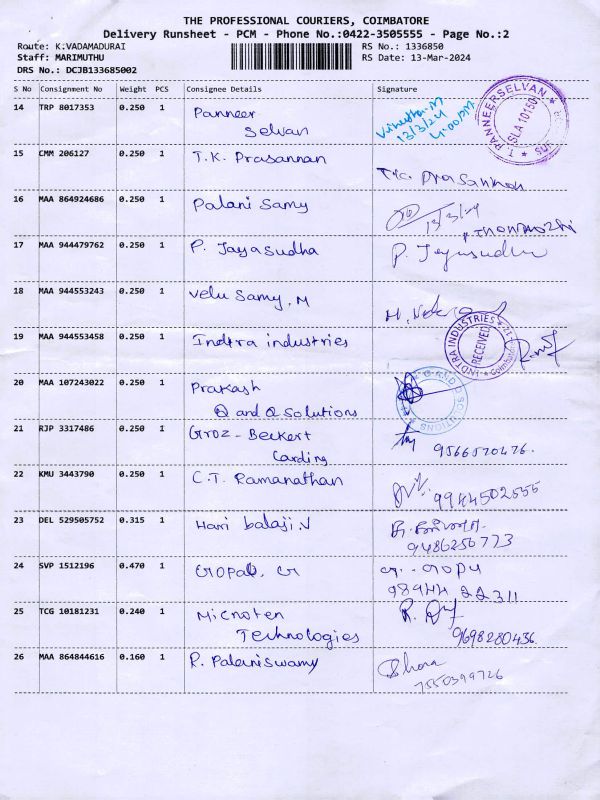 THE PROFESSIONAL COURIERS, COIMBATORE
Delivery Runsheet - PCM - Phone No.:0422-3505555 - Page No.:2
Route: K.VADAMADURAI RS No.: 1336850
Staff: MARIMUTHU RS Date: 13-Mar-2024
DRS No.: DCJB133685002
S No Consignment No Weight PCS Consignee Details Signature
14 TRP 8017353 0.250 1 Panneer
Selvan
13/3/24
4:00 PM
T. PANNEERSELVAN
SLA 10150
15 CMM 206127 0.250 1 T.K. Prasannan
T.K. Prasannan
16 MAA 864924686 0.250 1 Palani Samy
13/3/24
17 MAA 944479762 0.250 1 P. Jayasudha P. Jayasudha
18 MAA 944553243 0.250 1 Velu Samy. M
19 MAA 944553458 0.250 1 Indtra industries
INDTRA INDUSTRIES
RECEIVED
Coimbatore
20 MAA 107243022 0.250 1 Prakash
Q and Q Solutions
21 RJP 3317486 0.250 1 Groz - Beckert
Carding
9566570476.
22 KMU 3443790 0.250 1 C.T. Ramanathan
9944502555
23 DEL 529505752 0.315 1 Hari balaji.V
9486256773
24 SVP 1512196 0.470 1 Gopal. G G. Gopu
98944 22311
25 TCG 10181231 0.240 1 Micnoten
Technologies
9698280436.
26 MAA 864844616 0.160 1 R. Palaniswamy
7550399726